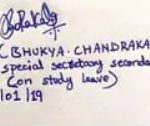 (BHUKYA. CHANDRAKA
special secretary seconda
(on study leave)
01/19